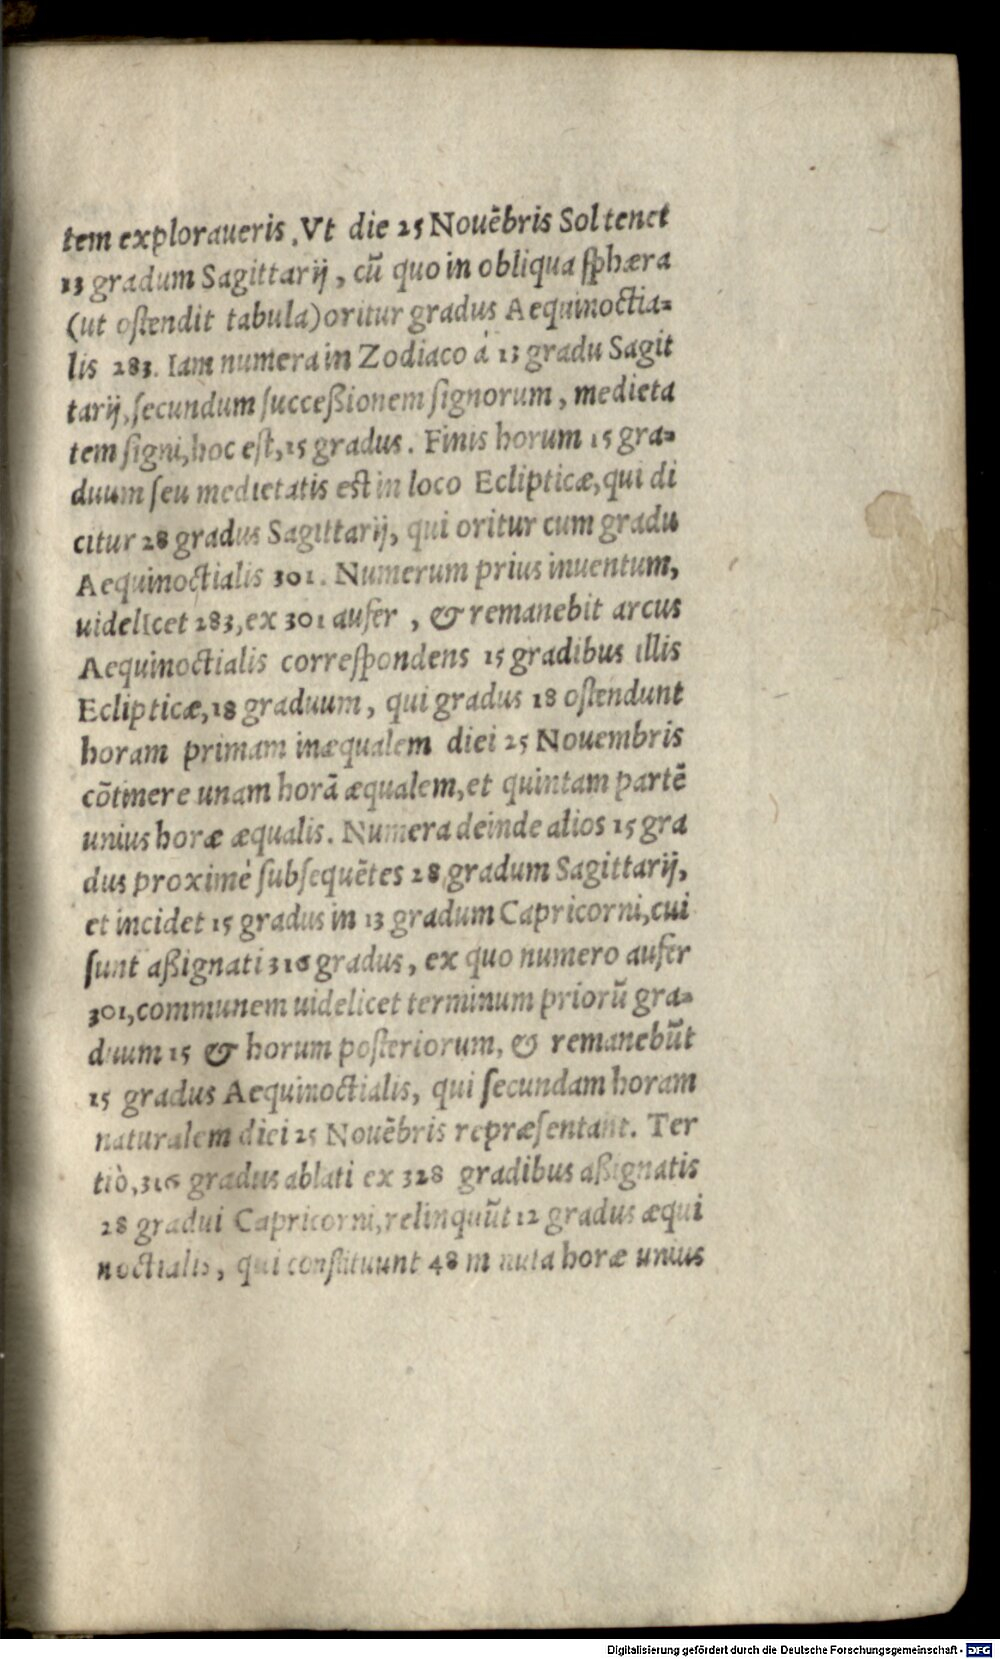 tem exploraueris. Vt die 25 Nouẽbris Sol tenet
13 gradum Sagittarij, cũ quo in obliqua sphæra
(ut ostendit tabula) oritur gradus Aequinoctia=
lis 283. Iam numera in Zodiaco á 13 gradu Sagit
tarij, secundum succeßionem signorum, medieta
tem signi, hoc est, 15 gradus. Finis horum 15 gra=
duum seu medietatis est in loco Eclipticæ, qui di
citur 28 gradus Sagittarij, qui oritur cum gradu
Aequinoctialis 301. Numerum prius inuentum,
uidelicet 283, ex 301 aufer, & remanebit arcus
Aequinoctialis correspondens 15 gradibus illis
Eclipticæ, 18 graduum, qui gradus 18 ostendunt
horam primam inæqualem diei 25 Nouembris
cõtinere unam horã æqualem, et quintam partẽ
unius horæ æqualis. Numera deinde alios 15 gra
dus proximè subsequẽtes 28 gradum Sagittarij,
et incidet 15 gradus in 13 gradum Capricorni, cui
sunt aßignati 316 gradus, ex quo numero aufer
301, communem uidelicet terminum priorũ gra=
duum 15 & horum posteriorum, & remanebũt
15 gradus Aequinoctialis, qui secundam horam
naturalem diei 25 Nouẽbris repræsentant. Ter
tiò, 316 gradus ablati ex 328 gradibus aßignatis
28 gradui Capricorni, relinquũt 12 gradus æqui
noctialis, qui constituunt 48 minuta horæ unius
Digitalisierung gefördert durch die Deutsche Forschungsgemeinschaft - DFG